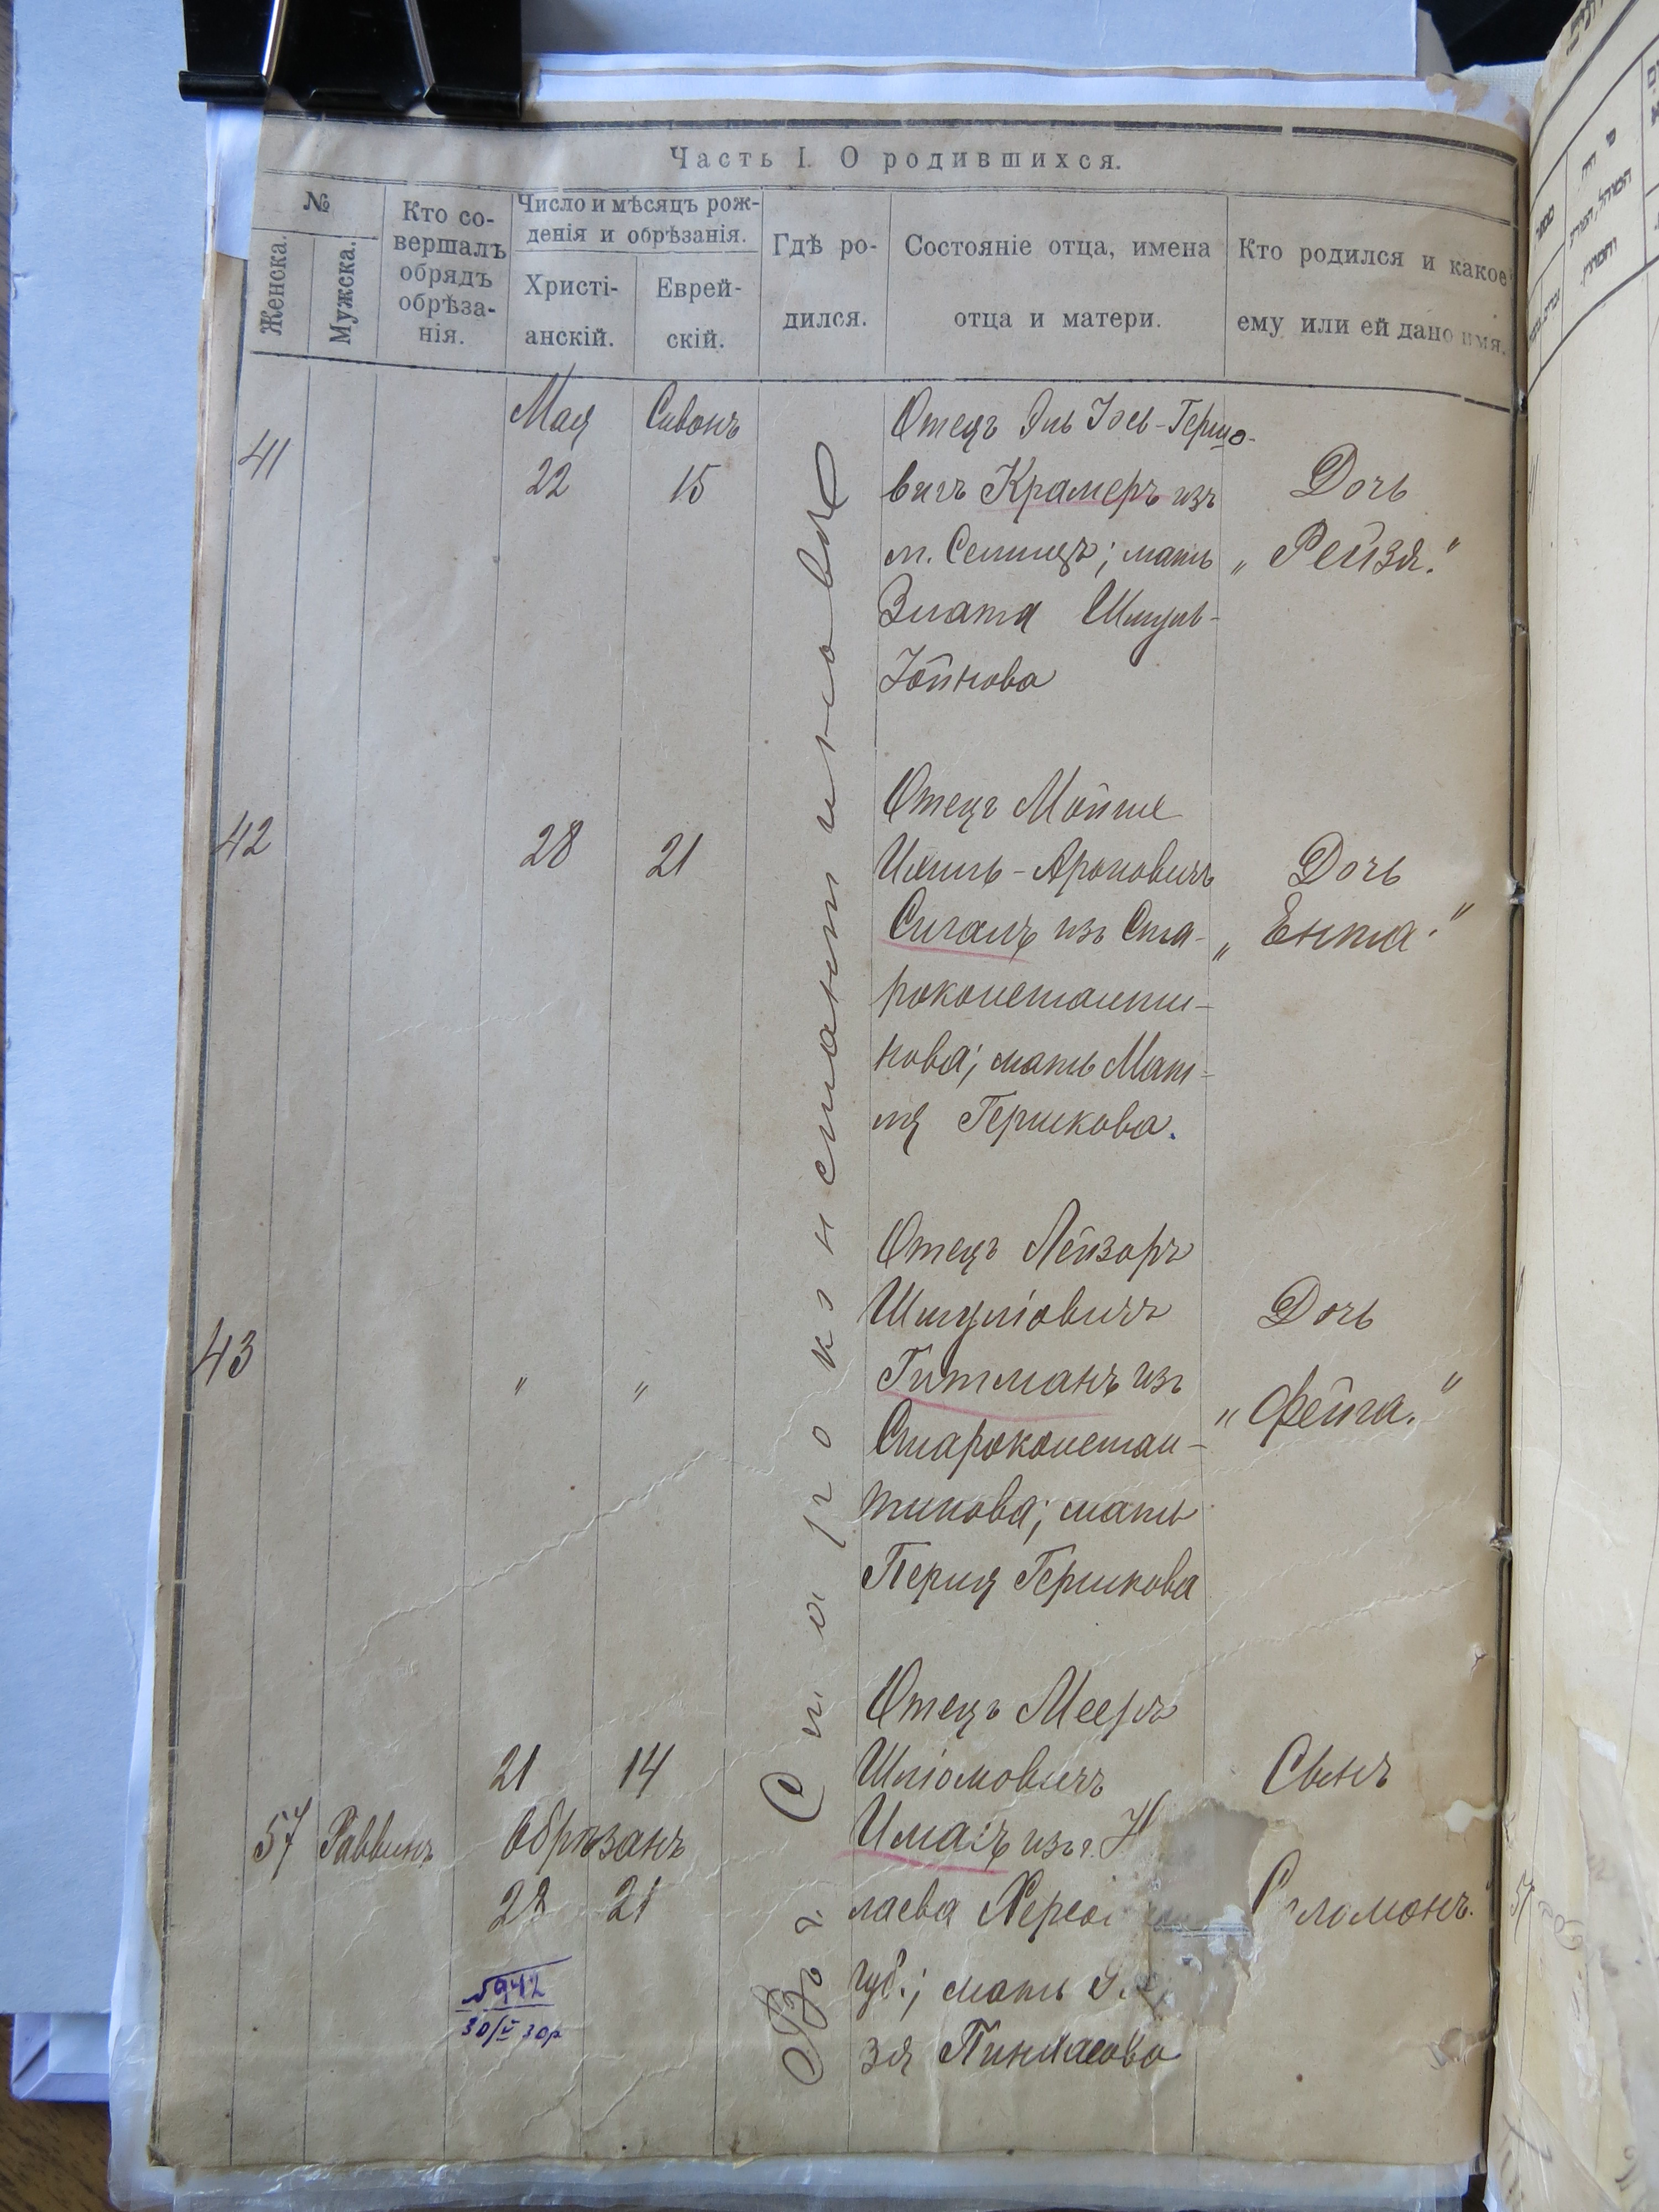 Часть I. О родившихся.
№
Женска.
Мужска.
Кто со-
вершалъ
обрядъ
обрѣза-
нія.
Число и мѣсяцъ рож-
денія и обрѣзанія.
Христі-
анскій.
Еврей-
скій.
Гдѣ ро-
дился.
Состояніе отца, имена
отца и матери.
Кто родился и какое
ему или ей дано имя.
Въ г. Староконстантиновѣ
41
Мая
22
Сивонъ
15
Отецъ Эль Іось-Гершо-
вичъ Крамеръ изъ
м. ; мать
Злата Шмуль-
Іойнова
Дочь
„Рейзя."
42
28
21
Отецъ Мойше
Ихиль-Ароновичъ
Сигалъ изъ Ста-
роконстанти-
нова; мать Мат-
ля Гершкова.
Дочь
„Ента."
43
"
"
Отецъ Лейзоръ
Шмуліовичъ
Гитманъ изъ
Староконстан-
тинова; мать
Перля Гершкова
Дочь
„Фейга."
57
Раввинъ
21
14
Обрѣзанъ
28
21
Отецъ Мееръ
Шліомовичъ
изъ г. Н
лаева Херсо
губ.; мать
зя Пинхасова
Сынъ
С ломонъ."
5942
30/V 30р